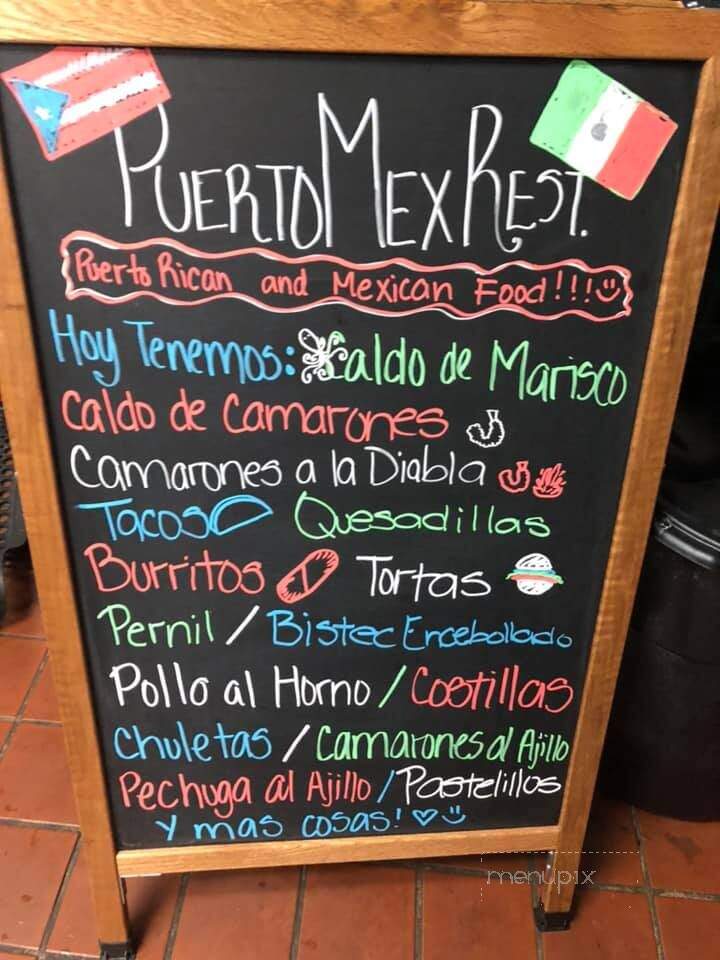 PUERTO MEX REST.
Puerto Rican and Mexican Food!!!
Hoy Tenemos: Caldo de Marisco
Caldo de Camarones
Camarones a la Diabla
Tacos Quesadillas
Burritos Tortas
Pernil / Bistec Encebollado
Pollo al Horno / Costillas
Chuletas / Camarones al Ajillo
Pechuga al Ajillo / Pastelillos
Y mas cosas!
menupix